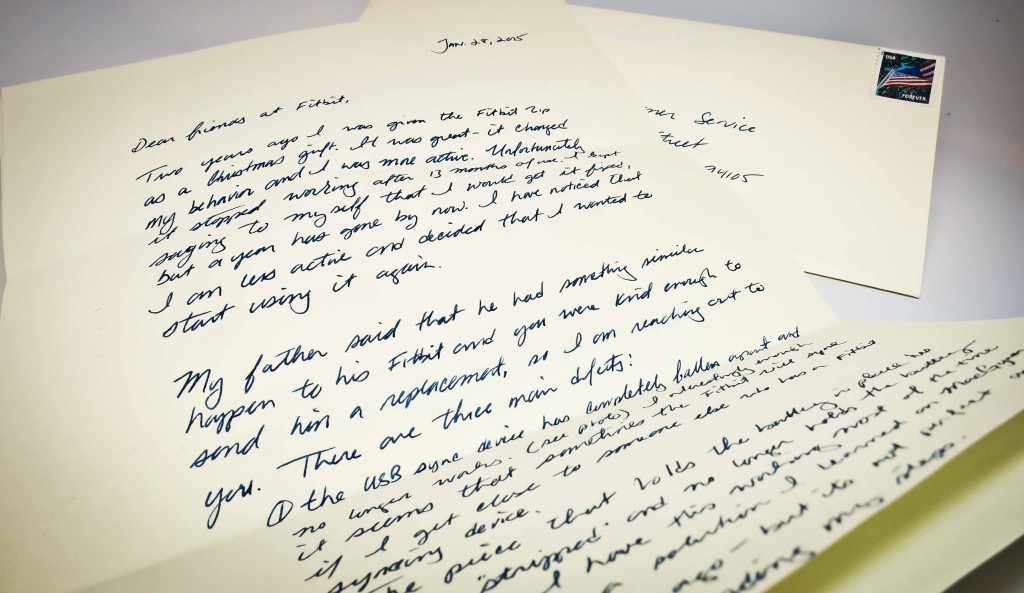 JAN. 28, 2015
Dear friends at Fitbit,
Two years ago I was given the Fitbit Zip
as a Christmas gift. It was great - it changed
my behavior and I was more active. Unfortunately
it stopped working after 13 months of use. I kept
saying to myself that I would get it fixed,
but a year has gone by now. I have noticed that
I am less active and decided that I wanted to
start using it again.
My father said that he had something similar
happen to his Fitbit and you were kind enough to
send him a replacement, so I am reaching out to
you. There are three main defects:
① the USB sync device has completely fallen apart and
no longer works. (see photo) Interestingly enough
it seems that sometimes the Fitbit will sync
if I get close to someone else who has a Fitbit
syncing device.
The piece that holds the battery in place is
"stripped" and no longer holds the battery
I have this working most of the time
a solution I learned on
ago - but its not perfect
steps.
USA
FOREVER
mer Service
treet
94105